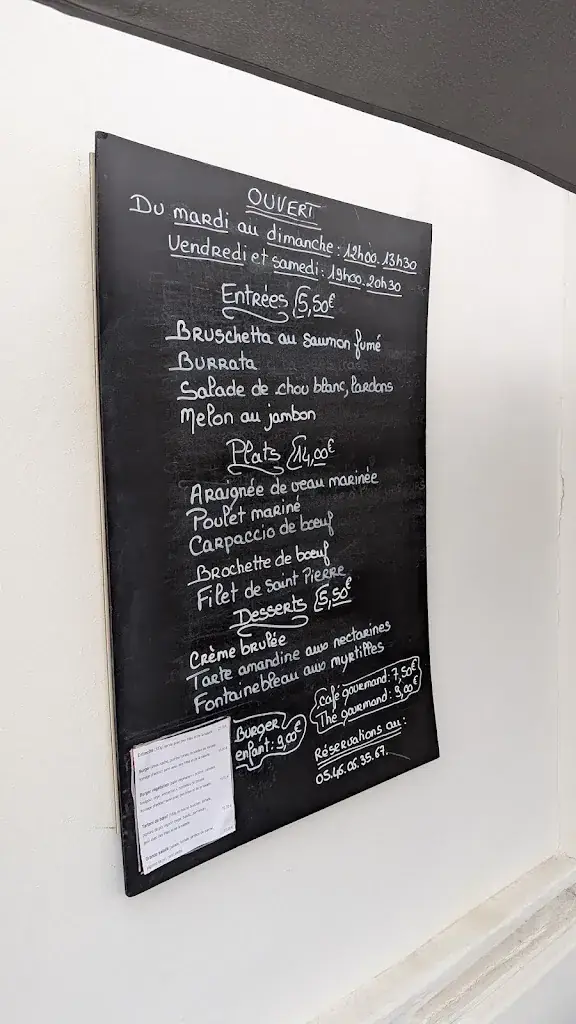 OUVERT
Du mardi au dimanche : 12h00. 13h30
Vendredi et samedi : 19h00. 20h30
Entrées 5,50€
Bruschetta au saumon fumé
Burrata
Salade de chou blanc, lardons
Melon au jambon
Plats 14,00€
Araignée de veau marinée
Poulet mariné
Carpaccio de bœuf
Brochette de bœuf
Filet de Saint Pierre
Desserts 5,50€
Crème brulée
Tarte amandine aux nectarines
Fontainebleau aux myrtilles
Burger
enfant : 9,00€
Café gourmand : 7,50€
Thé gourmand : 9,00€
Réservations au :
05.46.06.35.67.
Burger
Burger végétarien
Tartare de bœuf
Grande salade